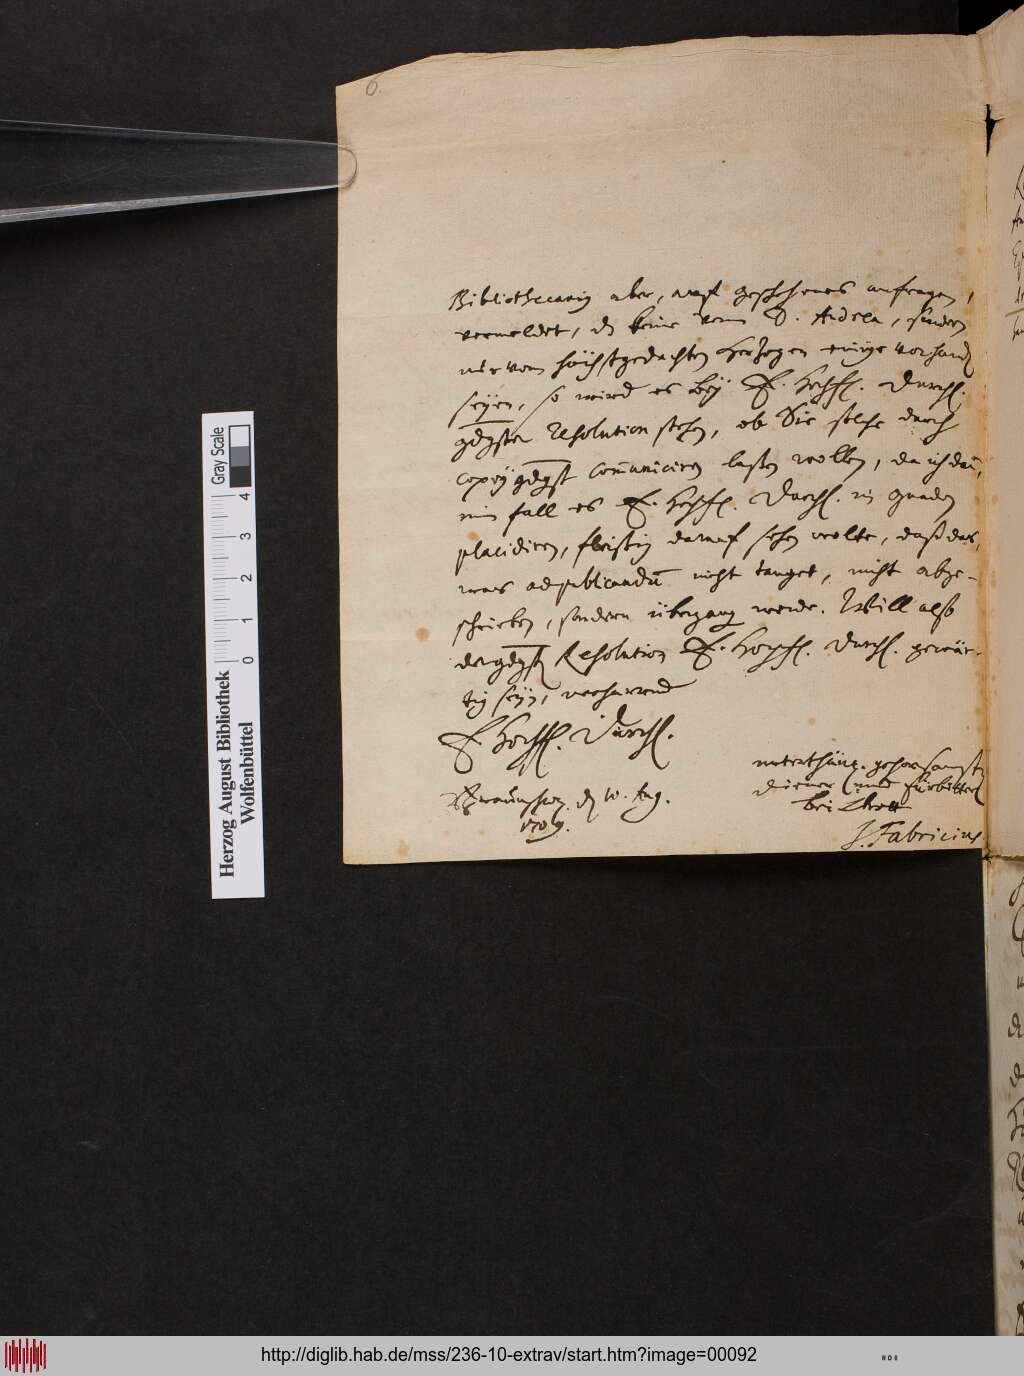 6.
Bibliothecarius aber, auf geschehenes anfragen,
vermeldet, dz keine vom D. Andrea, sondern
nur vom höchstgedachten Herzogen einige vorhanden
seyen, so wird es bey E. Hochfl. Durchl.
gdgster resolution stehen, ob Sie solche durch
copey gdgst com̄uniciren laßen wollen, da ich dan̄,
im fall es E. Hochfl. Durchl. in gnaden
placidiren, fleißig darauf sehen wolte, daß das,
was ad publicandū nicht tauget, nicht abge-
schrieben, sondern übergang werde. Will also
der gdgst Resolution E. Hochfl. Durchl. gewär-
tig seyn, verharrend
E. Hochfl. Durchl.
Braunschw. dz 10. Aug.
1709.
unterthänig. gehorsamster
Diener und fürbitter
bei Gott
J. Fabricius
Herzog August Bibliothek
Wolfenbüttel
Gray Scale
0 1 2 3 4
http://diglib.hab.de/mss/236-10-extrav/start.htm?image=00092